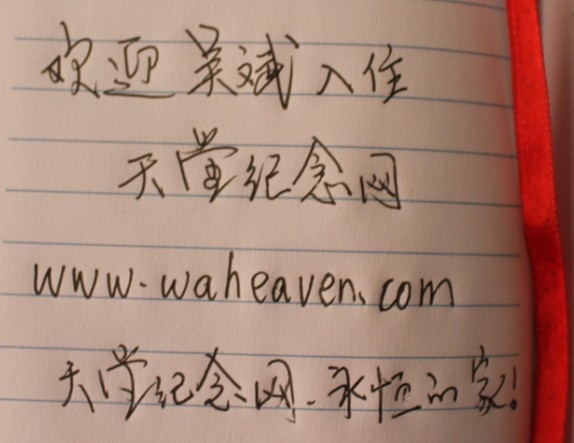 欢迎吴斌入住
天堂纪念网
www.waheaven.com
天堂纪念网.永恒的家!